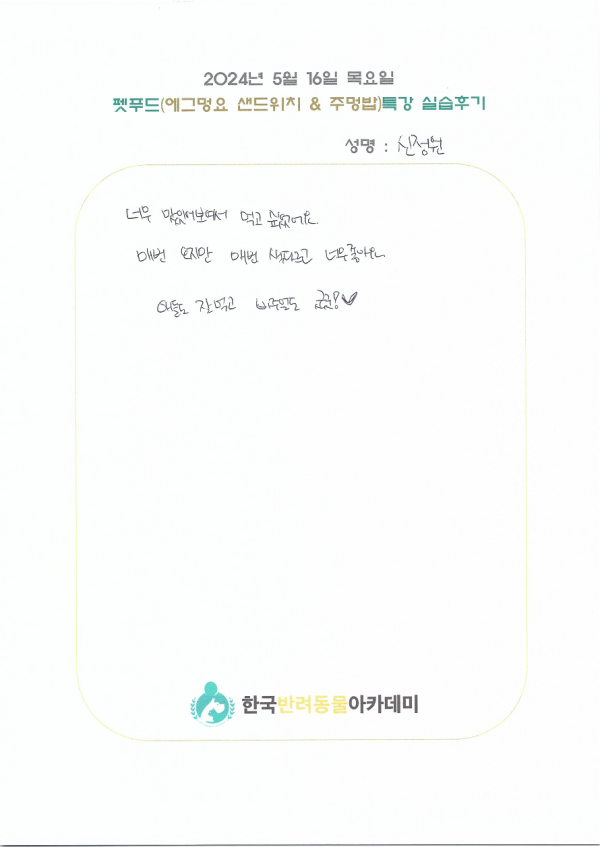 2024년 5월 16일 목요일
펫푸드(에그멍요 샌드위치 & 주멍밥)특강 실습후기
성명 : 신정원
너무 맛있어보여서 먹고 싶었어요.
매번 오지만 매번 색다르고 너무좋아요
애들도 잘먹고 비주얼도 굳!♥
한국반려동물아카데미